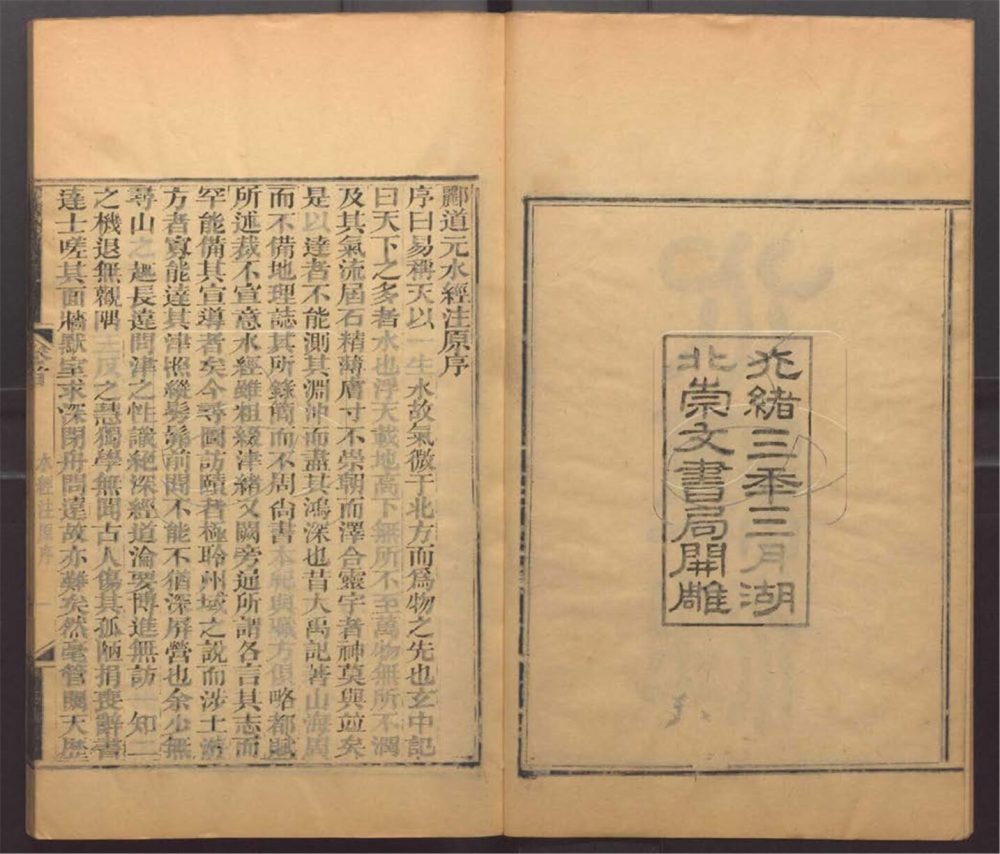 光緒三年三月湖
北崇文書局開雕
酈道元水經注原序
序曰易稱天以一生水故氣微于北方而爲物之先也玄中記
曰天下之多者水也浮天載地高下無所不至萬物無所不潤
及其氣流屆石精薄膚寸不崇朝而澤合靈宇者神莫與竝矣
是以達者不能測其淵沖而盡其鴻深也昔大禹記著山海周
而不備地理誌其所錄簡而不周尚書本紀與職方俱略都賦
所述裁不宣意水經雖粗綴津緒又闕旁通所謂各言其志而
罕能備其宣導者矣今尋圖訪賾者極聆州域之說而涉土遊
方者寡能達其津照縱髣髴前聞不能不猶深屏營也余少無
尋山之趣長違問津之性識絕深經道淪要博進無訪一知二
之機退無觀隅三反之慧獨學無聞古人傷其孤陋捐喪辭書
達士嗟其面牆默室求深閉舟問遠故亦難矣然毫管闚天歷
卷首
水經注原序
一